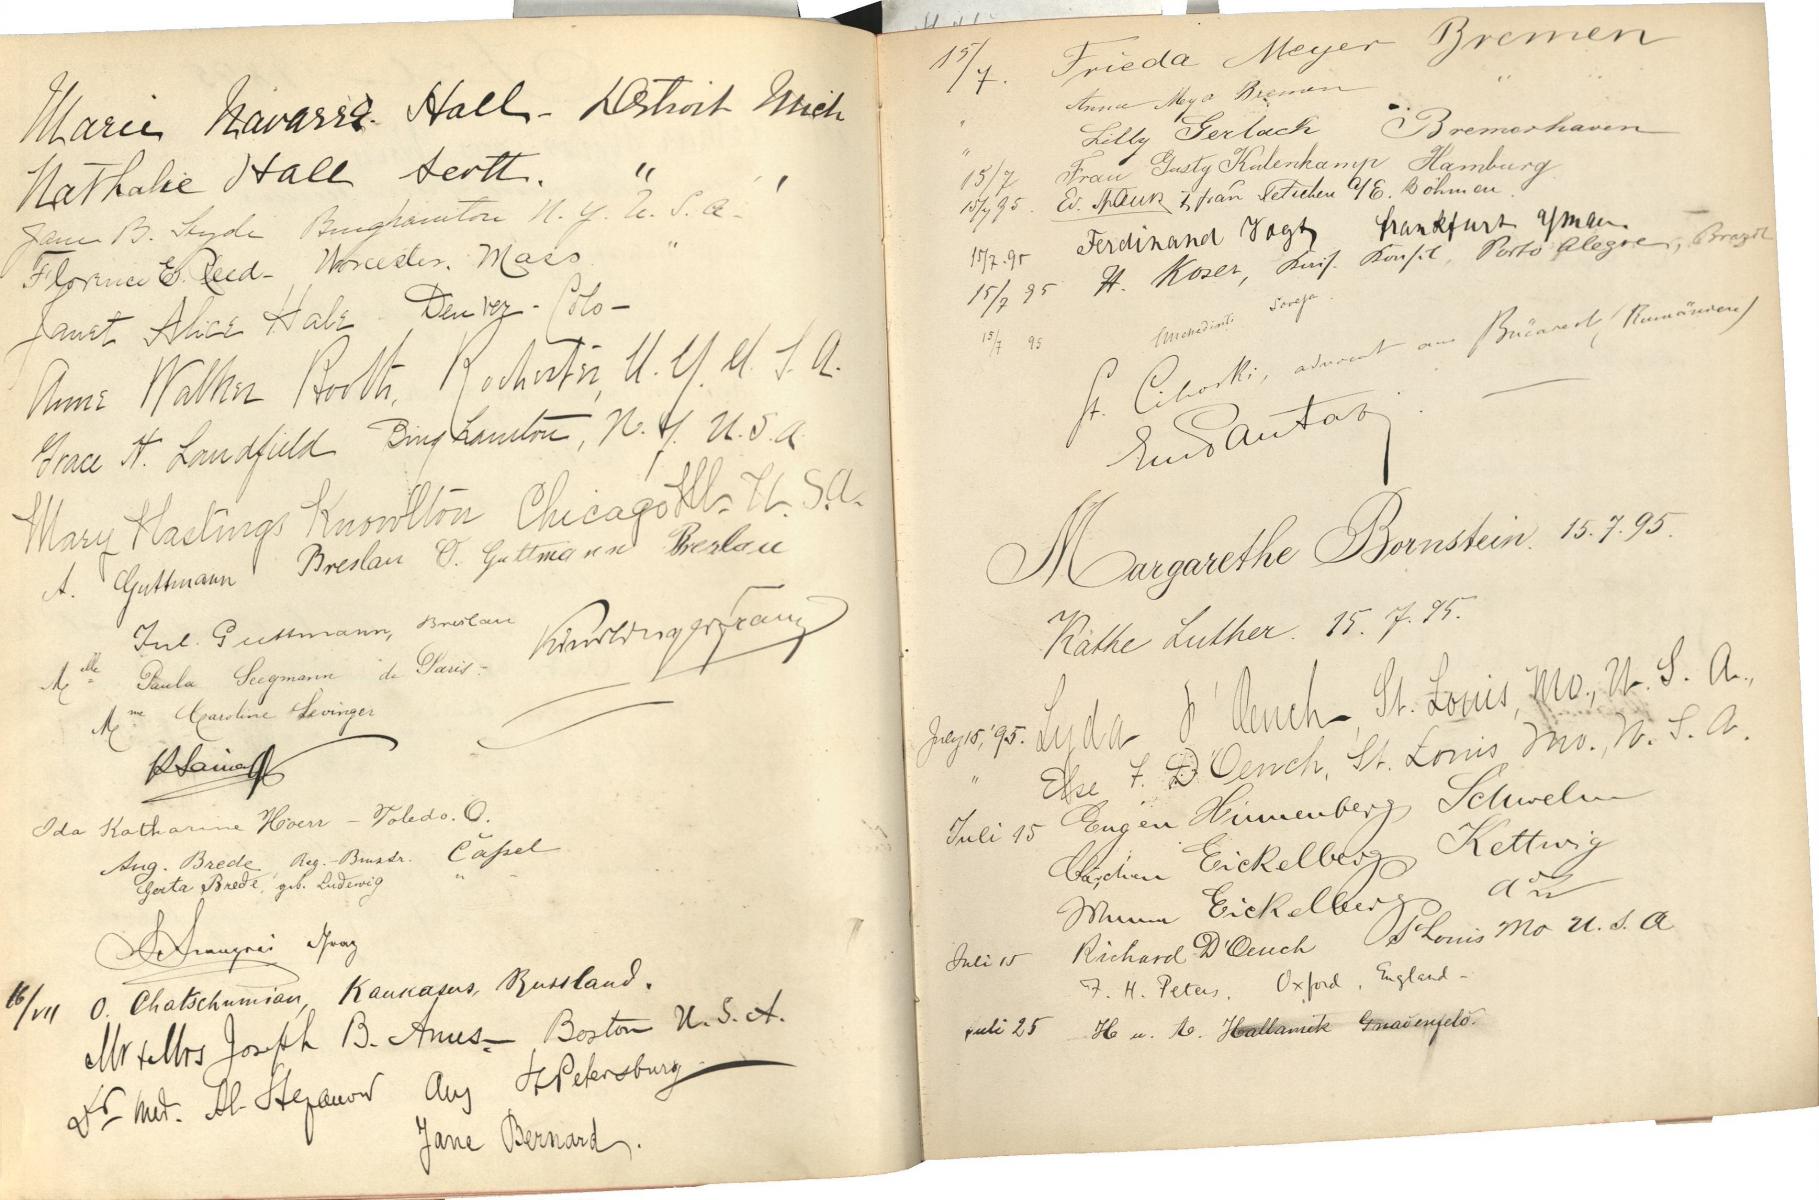 Marie Navarre Hall - Detroit Mich
Nathalie Hall Scott. " "
Jane B. Hyde Binghamton N. Y. U. S. A.
Florence E. Reed - Worcester. Mass "
Janet Alice Hale Denver - Colo -
Anne Walker Booth, Rochester, N. Y. U. S. A.
Grace H. Landfield Binghamton, N. Y. U. S. A
Mary Hastings Knowlton Chicago Ill. U. S. A.
A. Guttmann Breslau O. Guttmann Breslau
Jul. Guttmann, Breslau
Mlle Paula Seegmann de Paris -
Mme Caroline Levinger
Ida Katharine Hoerr - Toledo. O.
Aug. Brede Reg.-Bmstr. Cassel
Gerta Brede, geb. Ludewig " "
16/VII O. Chatschumian, Kaukasus, Russland.
Mr & Mrs Joseph B. Ames - Boston U. S. A.
Dr med. Al. Stepanow Aus St Petersburg
Jane Bernard.
15/7. Frieda Meyer Bremen
" Anna Meyer Bremen " "
" Lilly Gerlach Bremerhaven
15/7 Frau Gusty Kulenkamp Hamburg
15/7 95. Ed. Tetschen a/E. Böhmen
15/7.95 Ferdinand Vogt Frankfurt
15/7 95 H. Koser, Kais. Konsul, Porto Alegre, Brazil
15/7 95
St. Cihoski, advocat aus Bucarest (Rumänien)
Margarethe Bornstein. 15.7.95.
Käthe Luther. 15. 7. 95.
July 15, '95. Lyda D'Oench, St. Louis, Mo., U. S. A.,
" Else F. D'Oench, St. Louis Mo., U. S. A.
Juli 15 Eugen Hinnenberg Schwelm
Eickelberg Kettwig
Eickelberg a d R
Juli 15 Richard D'Oench St Louis Mo U. S. A
F. H. Peters, Oxford, England -
Juli 25 H u. A. Gnadenfeld.